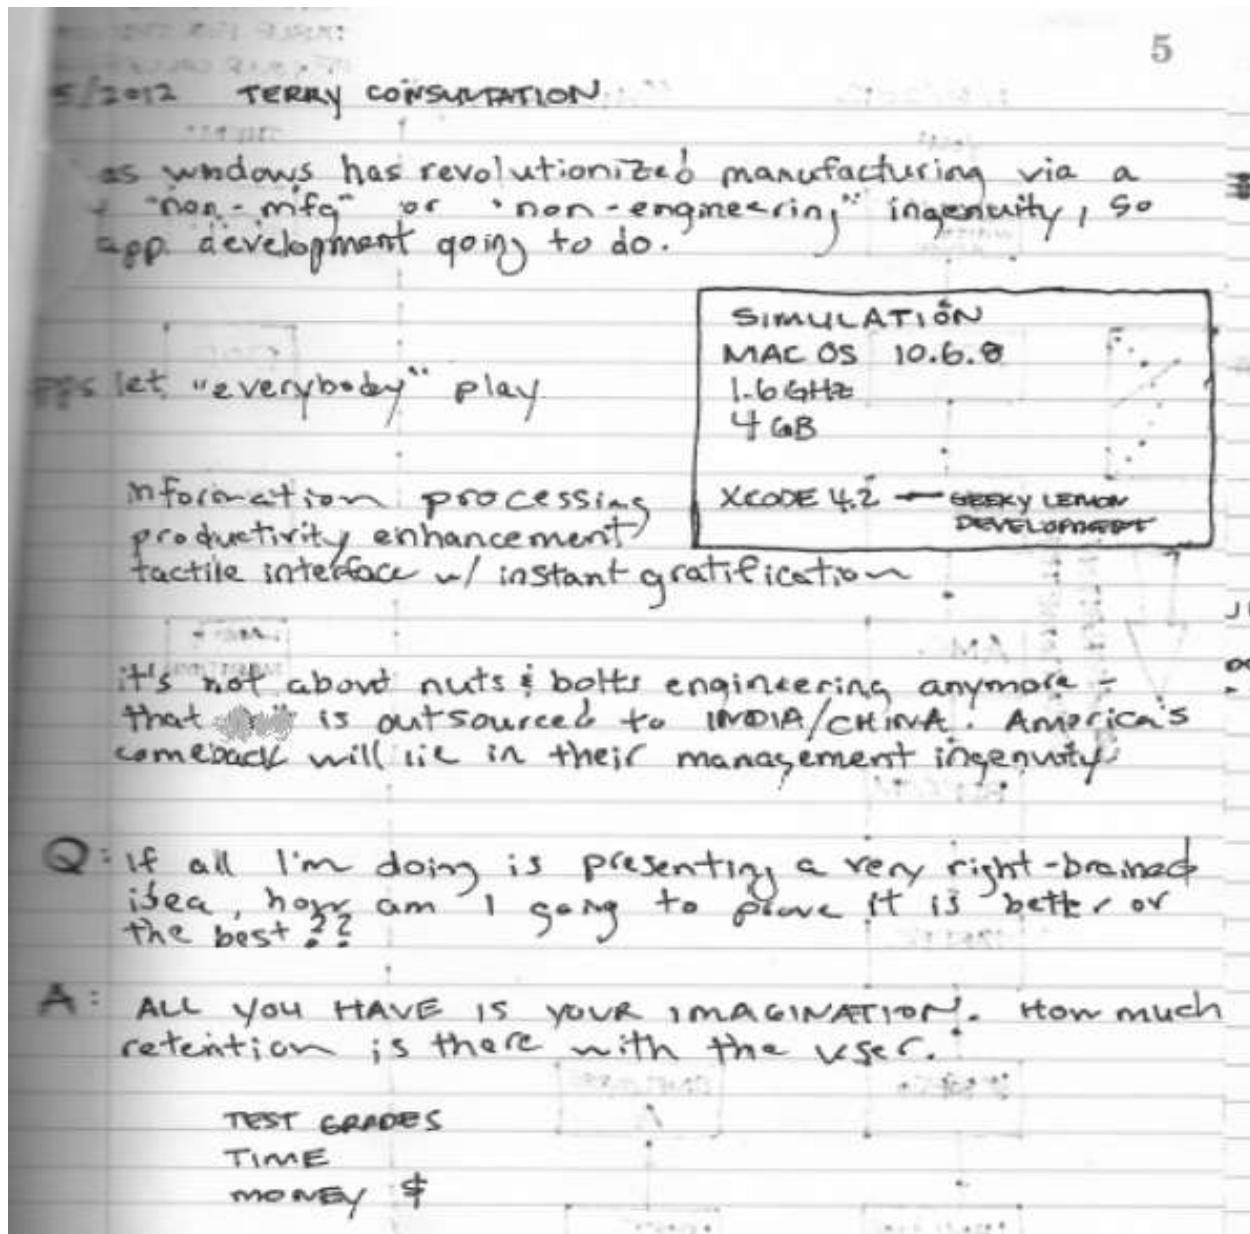 5
5/2012 TERRY CONSULTATION
as windows has revolutionized manufacturing via a
"non-mfg" or "non-engineering" ingenuity, so
app. development going to do.
SIMULATION
MAC OS 10.6.8
1.6 GHz
4 GB
XCODE 4.2 — GEEKY LEMON
DEVELOPMENT
pps let "everybody" play
information processing
productivity enhancement
tactile interface w/ instant gratification
it's not about nuts & bolts engineering anymore -
that is outsourced to INDIA/CHINA. America's
comeback will lie in their management ingenuity
Q: If all I'm doing is presenting a very right-brained
idea, how am I going to prove it is better or
the best??
A: ALL YOU HAVE IS YOUR IMAGINATION. How much
retention is there with the user.
TEST GRADES
TIME
MONEY $